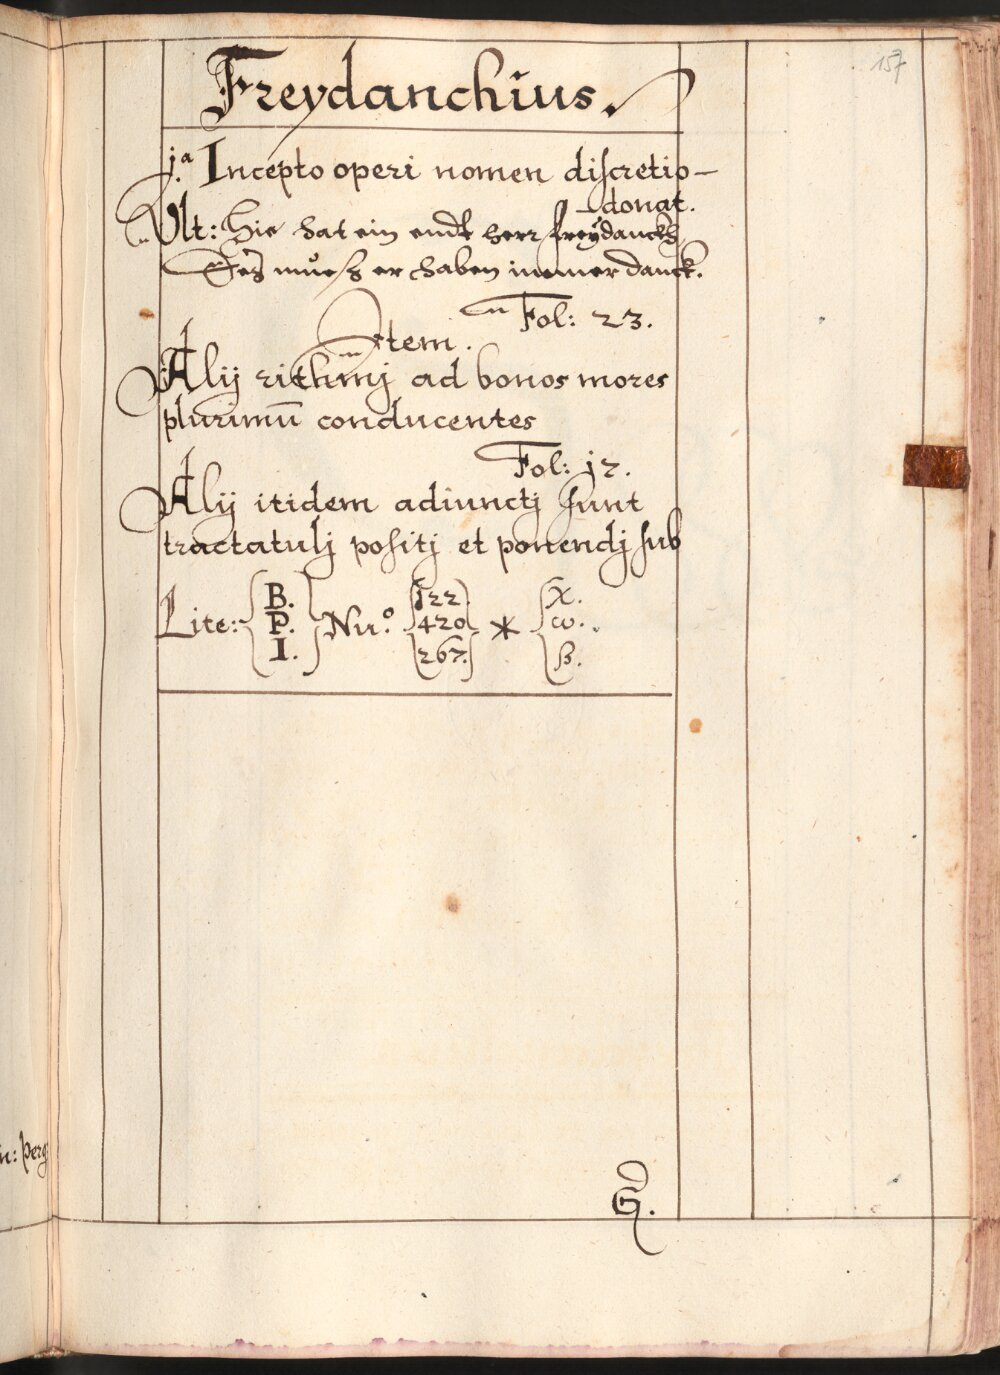 157
Freydanchius.
j.a Incepto operi nomen discretio-
-donat.
Ult: Hie hat ein endt herr freÿdanckh
Des mueß er haben immer danck.
Fol: 23.
Item.
Alij rithmj ad bonos mores
plurimū conducentes
Fol: j2.
Alij itidem adiunctj sunt
tractatulj positj et ponendj sub
Lite: { B. P. I. } Nu.o { j22. 420 267. } * { X. ω. β.
G.
n: perg